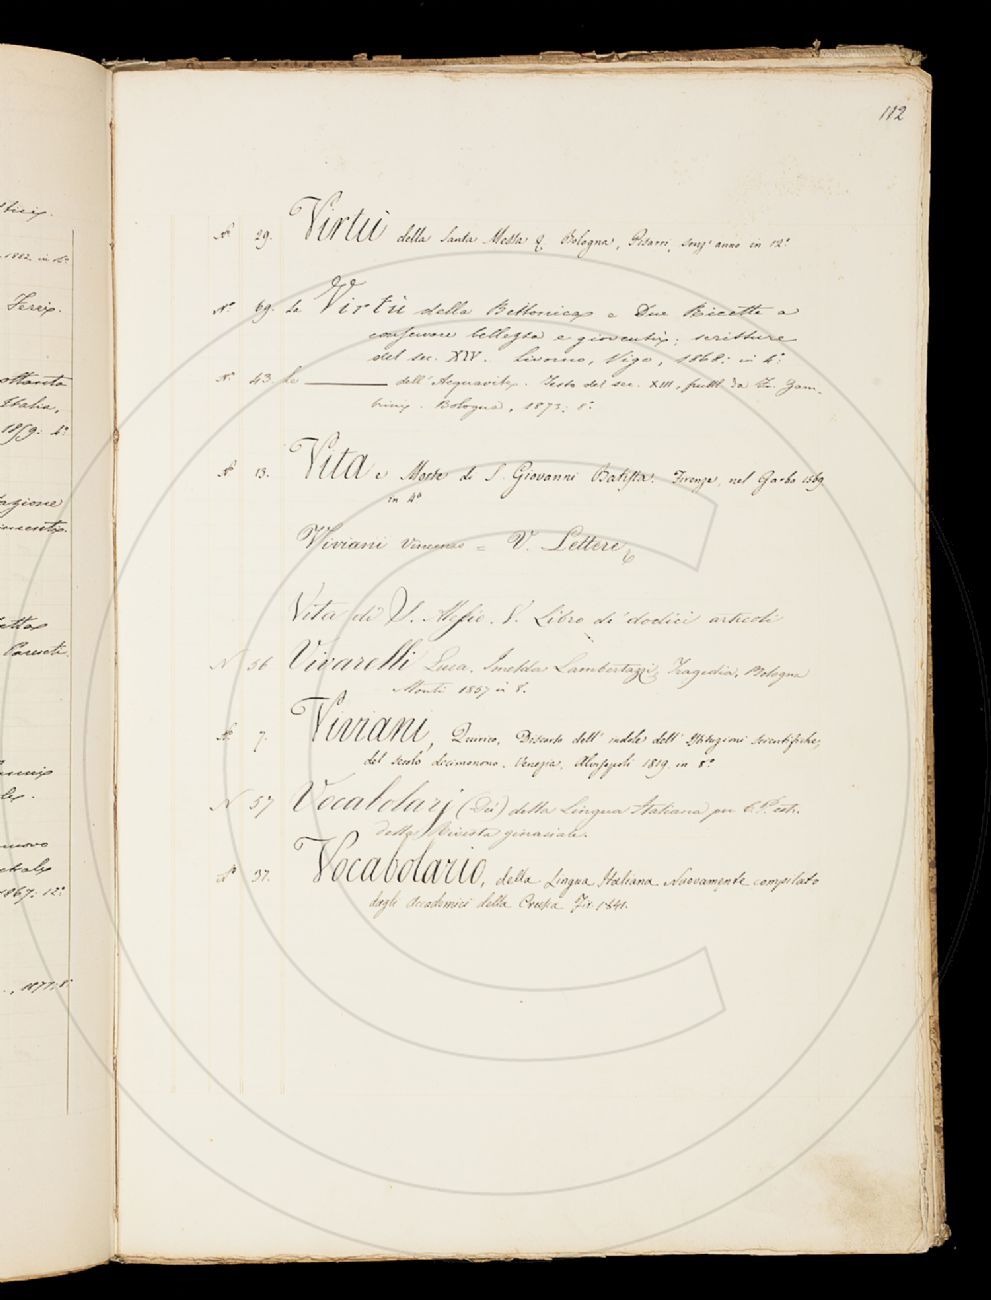 112
N.° 29. Virtù della Santa Messa &. Bologna, Pisarri, senz' anno in 12.°
N.° 69. Le Virtù della Bettonica e Due Ricette a
conservare bellezza e gioventù; scritture
del sec. XIV. Livorno, Vigo, 1868; in 4.°
N.° 43. Le ——— dell' Acquavite. Testo del sec. XIII, pubbl. da Fr. Zam-
brini. Bologna, 1873; 8.°
N.° 13. Vita e Morte di S. Giovanni Batista. Firenze, nel Garbo 1569
in 4.°
Viviani Vincenzo = V. Lettere
Vita di S. Alessio. V. Libro di dodici articoli
N 56 Vivarelli Luca. Imelda Lambertazzi, Tragedia. Bologna
Monti 1857 in 8.°
N.° 7. Viviani, Quirico, Discorso dell' indole dell' Istituzioni scientifiche,
del secolo decimonono. Venezia, Alvisopoli 1819. in 8.°
N 57 Vocabolarj (Dei) della Lingua Italiana per
della Rivista ginnasiale.
N.° 37. Vocabolario, della Lingua Italiana Nuovamente compilato
dagli Accademici della Crusca Fir. 1841.
Ferrix.
Italia,
1859. 4.°
1867. 12.°
1877; 8.°